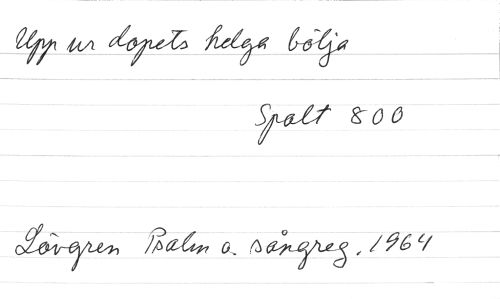 Upp ur dopets helga bölja
Spalt 800
Lövgren Psalm o. sångreg. 1964